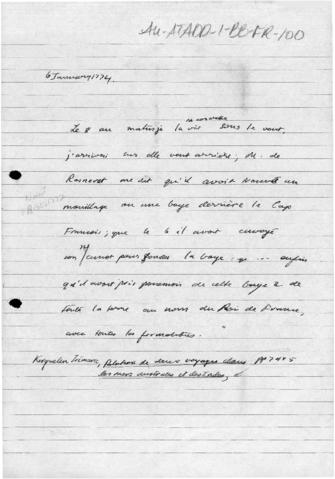 AU-ATADD-1-BB-FR-100
6 January 1774.
la corvette
Le 8 au matin je la vis sous le vent,
j'arrivai sur elle vent arrière, M. de
Rosnevet me dit qu'il avoit trouvé un
mouillage ou une baye derrière le Cap
François; que le 6 il avoit envoyé
son canot pour sonder la baye, ... enfin
qu'il avoit pris possession de cette baye & de
toute la terre au nom du Roi de France,
avec toutes les formalités. "
Kerguelen Trémarec, Relation de deux voyages dans
les mers australes et des Indes,